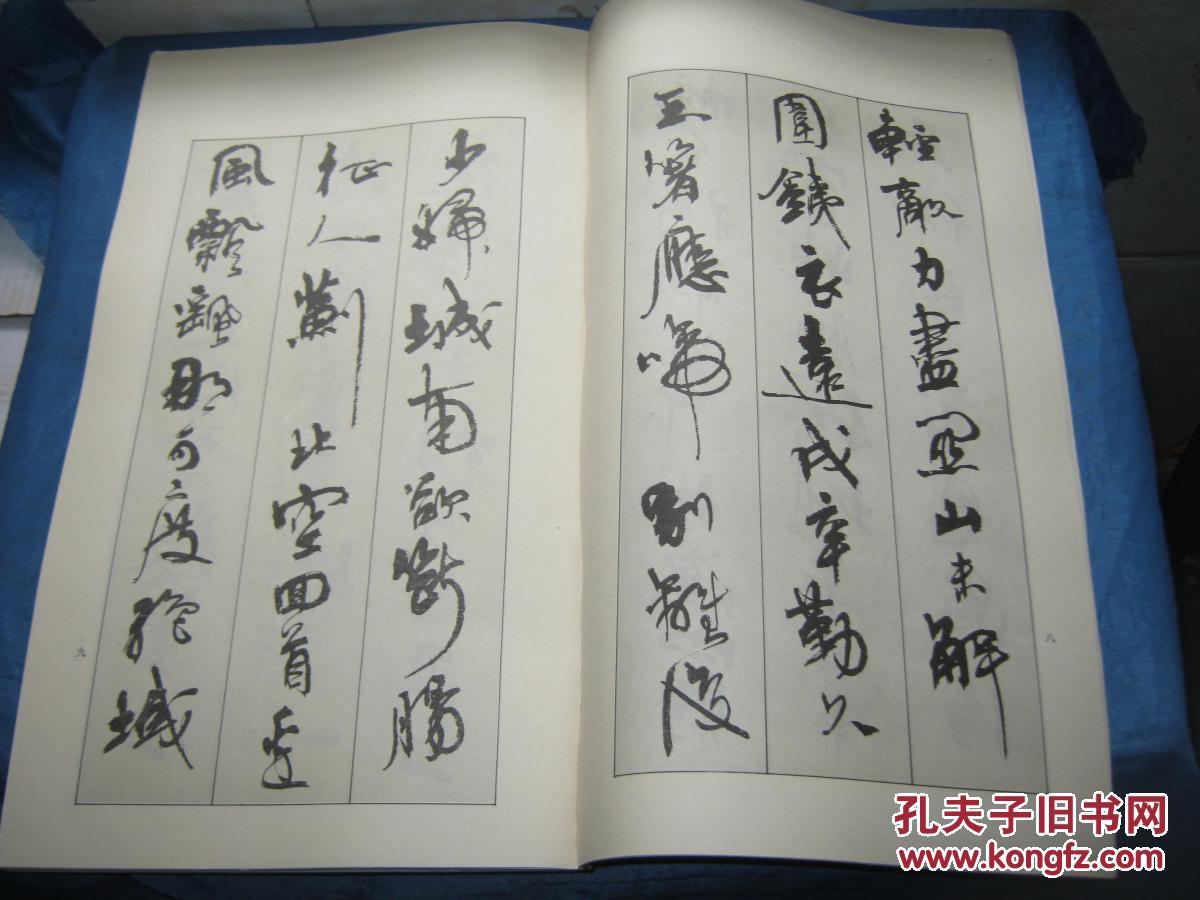 輕敵力盡關山未解
圍鐵衣遠戍辛勤久
玉箸應啼別離後
八
少婦城南欲斷腸
征人薊北空回首邊
風飄颻那可度絕域
九
孔夫子旧书网
www.kongfz.com